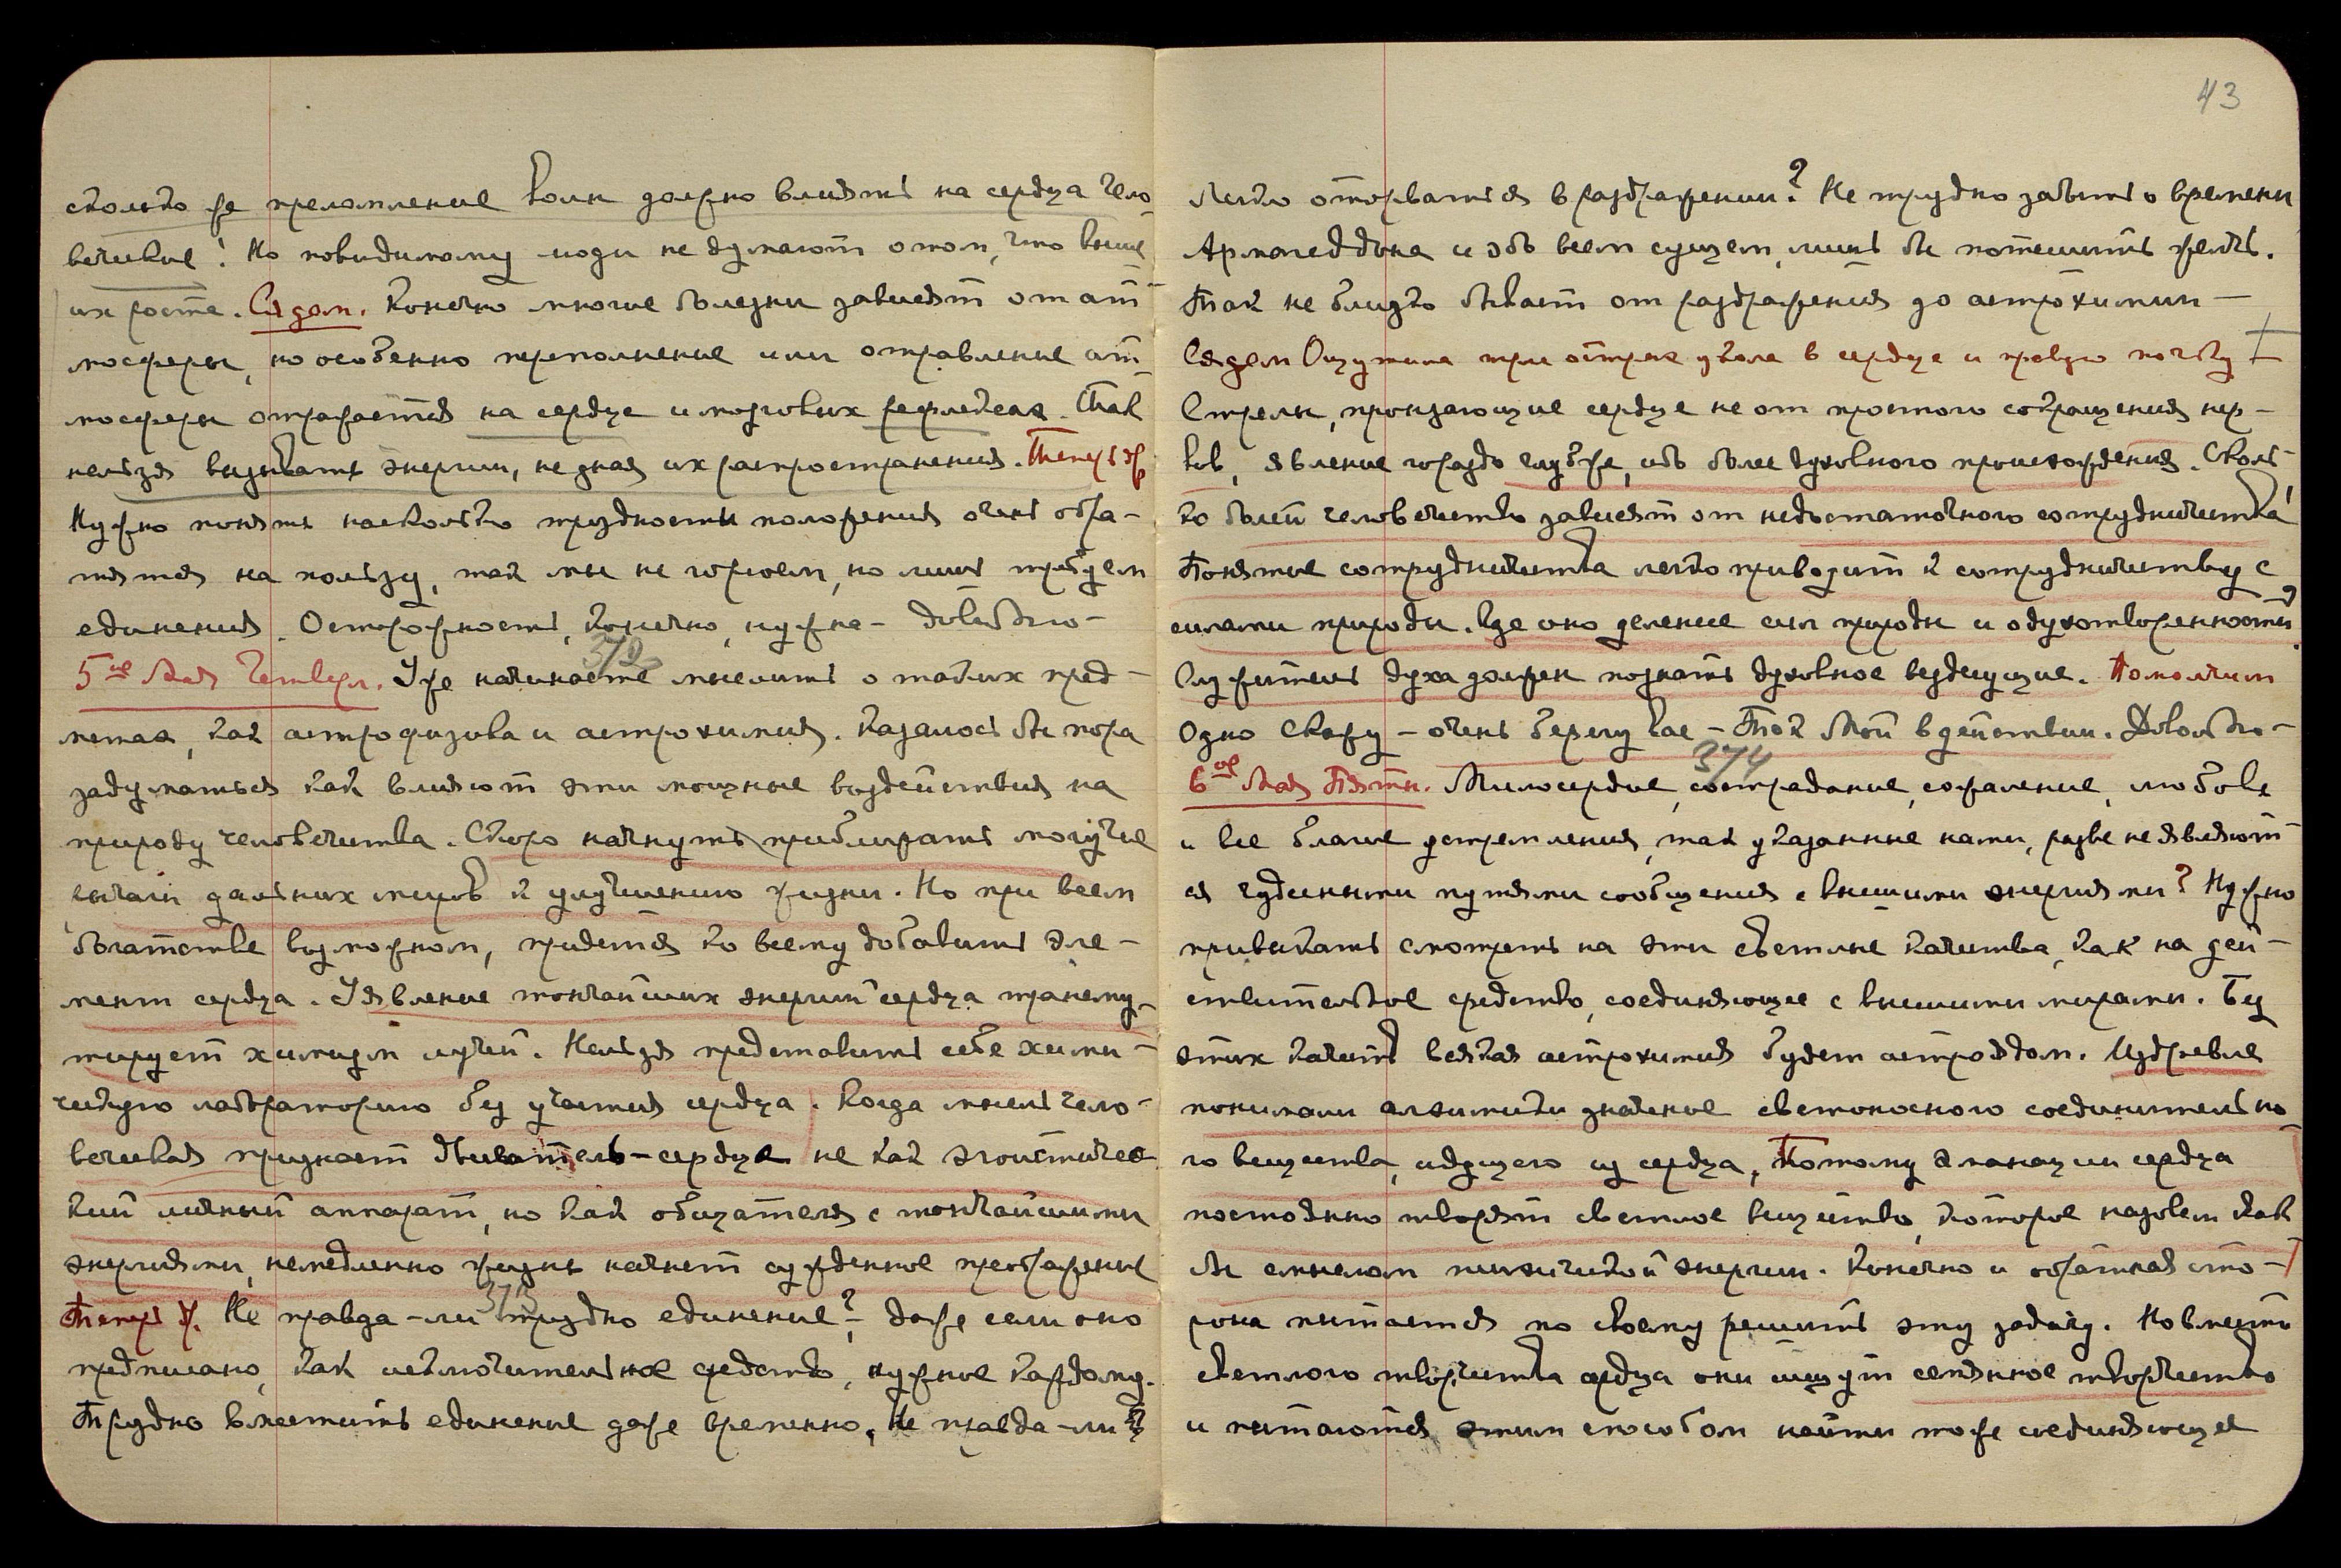 43
сколько же преломление волн должно влиять на сердца чело-
веческие! Но повидимому люди не думают о том, что выше
их роста. Сядем. Конечно многие болезни зависят от ат-
мосферы, но особенно переполнение или отравление ат-
мосферы отражается на сердце и мозговых рефлексах. Так
нельзя вызывать энергии, не зная их распространения. Теперь др.
Нужно понять насколько трудности положения очень обра-
тятся на пользу, так мы не горюем, но лишь требуем
единения. Осторожность, конечно, нужна – довольно –
372
5ое Мая Четверг. Уже начинаете мыслить о таких пред-
метах, как астрофизика и астрохимия. Казалось бы пора
задуматься как влияют эти мощные воздействия на
природу человечества. Скоро начнут прибирать могучие
лучи дальних миров к улучшению жизни. Но при всем
богатстве возможном, придется ко всему добавить эле-
мент сердца. Уявление тончайших энергий сердца трансму-
тирует химизм лучей. Нельзя представить себе хими-
ческую лабораторию без участия сердца. Когда мысль чело-
веческая признает двигатель-сердце не как эгоистичес-
кий личный аппарат, но как общателя с тончайшими
энергиями, немедленно жизнь начнет сужденное преображение
373
Теперь др. Не правда-ли трудно единение? – даже если оно
предписано, как исключительное средство, нужное каждому.
Трудно вместить единение даже временно, не правда-ли?
Легко оторваться в раздражении? Не трудно забыть о времени
Армагеддона и обо всем сущем, лишь бы потешить желчь.
Так не близко бывает от раздражения до астрохимии –
Сядем Ощутила три острых укола в сердце и правую почку
Стрелы, пронзающие сердце не от простого сокращения нер-
вов, явление гораздо глубже, ибо более духовного происхождения. Сколь-
ко болей человечества зависят от недостаточного сотрудничества!
Понятие сотрудничества легко приводит к сотрудничеству с
силами природы. Где оно деление сил природы и одухотворенности?
Служитель духа должен познать духовное вездесущие. Помолчим
Одно скажу – очень берегу вас – Ток Мой в действии. Довольно –
374
6ое Мая Пятн. Милосердие, сострадание, сожаление, любовь
и все благие устремления, так указанные нами, разве не являют-
ся чудесными путями сообщения с высшими энергиями? Нужно
привыкать смотреть на эти светлые качества, как на дей-
ствительное средство, соединяющее с высшими мирами. Без
этих качеств всякая астрохимия будет астроядом. Издревле
понимали алхимики значение светоносного соединительно-
го вещества, идущего из сердца, Потому эманации сердца
постоянно творят светлое вещество, которое назовем как
бы смыслом психической энергии. Конечно и обратная сто-
рона пытается по своему решить эту задачу. Но вместо
светлого творчества сердца они ищут семянное творчество
и пытаются этим способом найти тоже соединяющее